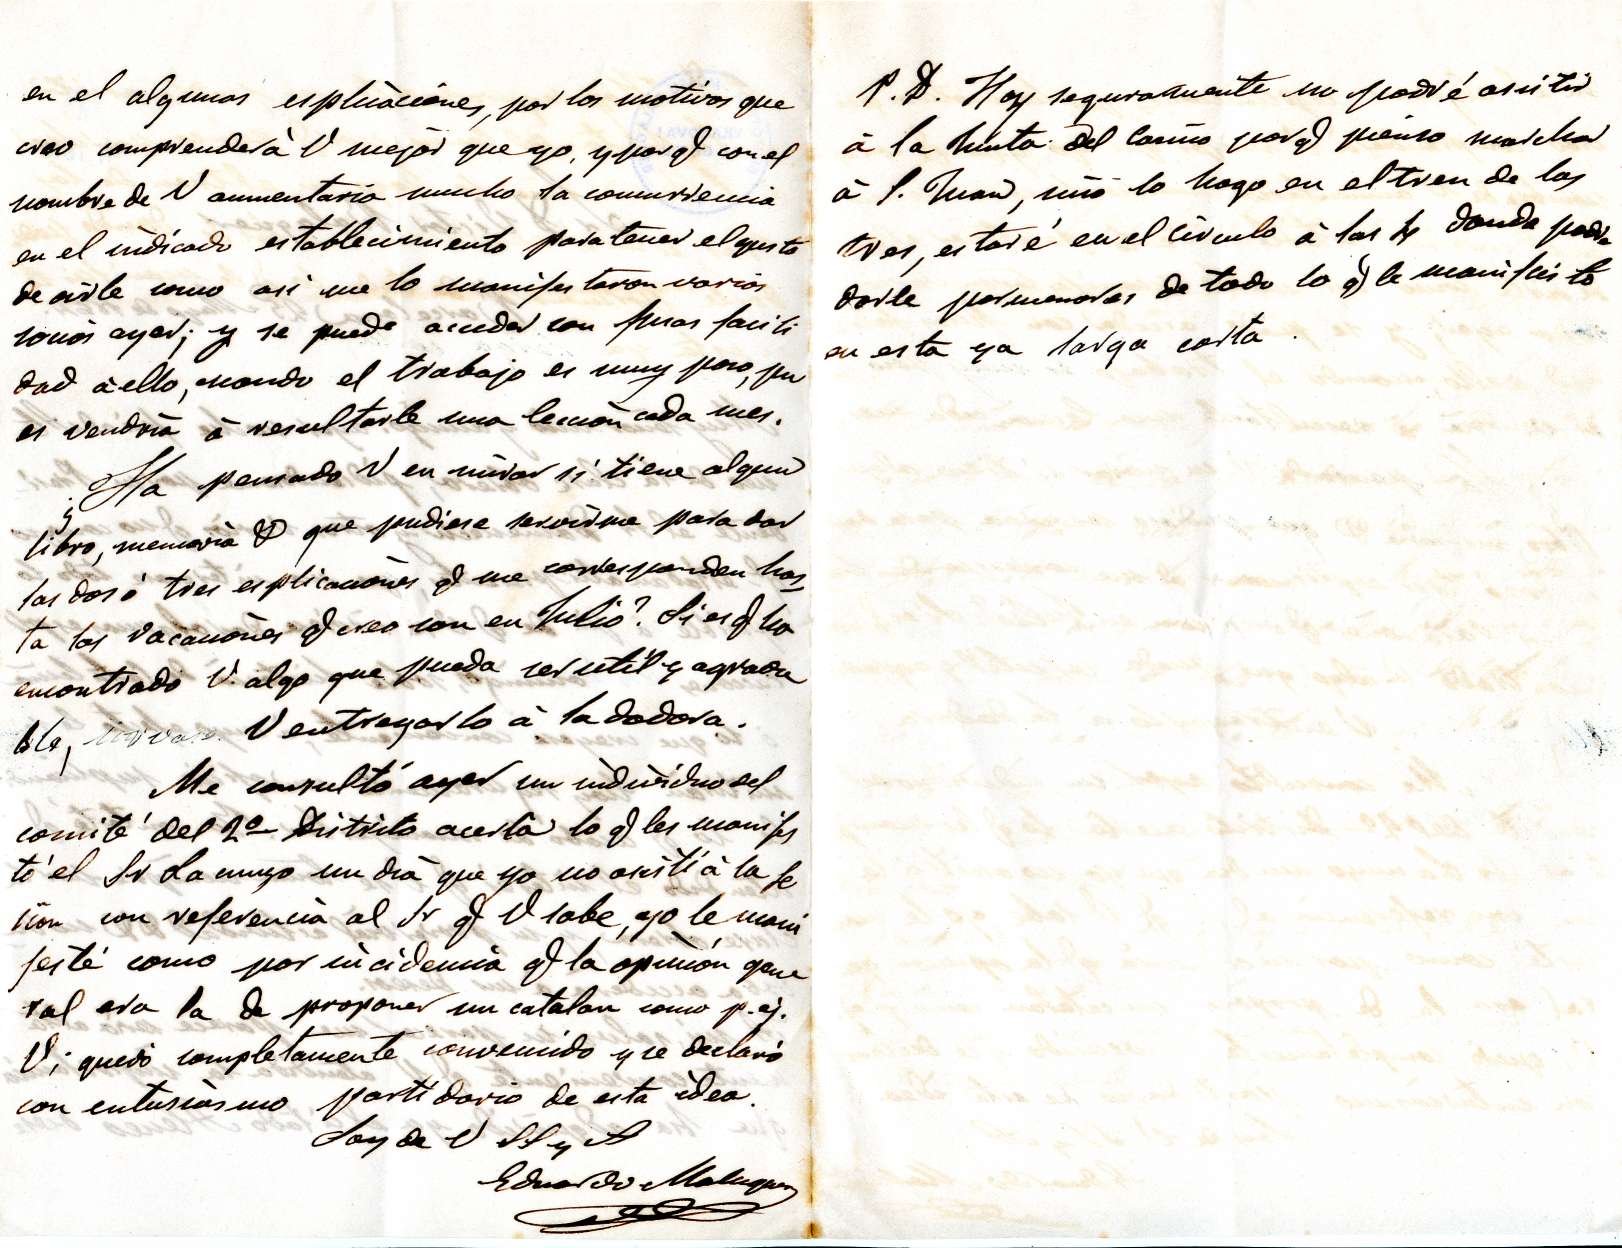 en el algunas esplicaciones, por los motivos que
creo comprenderà V mejor que yo, y por q̃ con el
nombre de V aumentaria mucho la concurrencia
en el indicado establecimiento para tener el gusto
de oirle como asi me lo manifestaron varios
socios ayer; y se puede acceder con facili
dad à ello, cuando el trabajo es muy poco, pu
es vendria à resultarle una lección cada mes.
¿Ha pensado V en mirar si tiene algun
libro, memoria & que pudiese servirme para dar
las dos ó tres esplicaciones q̃ me corresponden has
ta las vacaciones q̃ creo son en Julio? Si es q̃ ha
encontrado V. algo que pueda ser util y agrada
ble, sirvase V entregarlo à la dadora.
Me consultó ayer un individuo del
comité del 2º Distrito acerca lo q̃ les manifes
tó el Sr un dia que yo no asisti à la se
sion con referencia al Sr q̃ V sabe, yo le mani
festé como por incidencia q̃ la opinión gene
ral era la de proponer un catalan como p. ej.
V; quedó completamente convencido y se declaró
con entusiasmo partidario de esta idea.
Soy de V S.S. y A
Eduardo Maluquer
P. D. Hoy seguramente no podré asistir
à la Junta del Casino porq̃ pienso marchar
à S. Juan, sinó lo hago en el tren de las
tres, estaré en el circulo à las 4 donde podria
darle pormenores de todo lo q̃ le manifiesto
en esta ya larga carta.